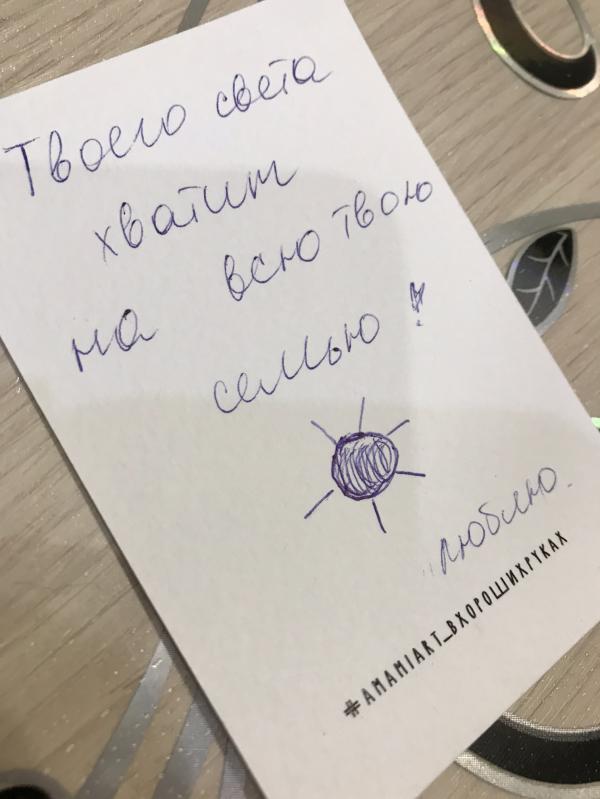 Твоего света
хватит
на всю твою
семью!
люблю.
#AMAMIART_ВХОРОШИХРУКАХ